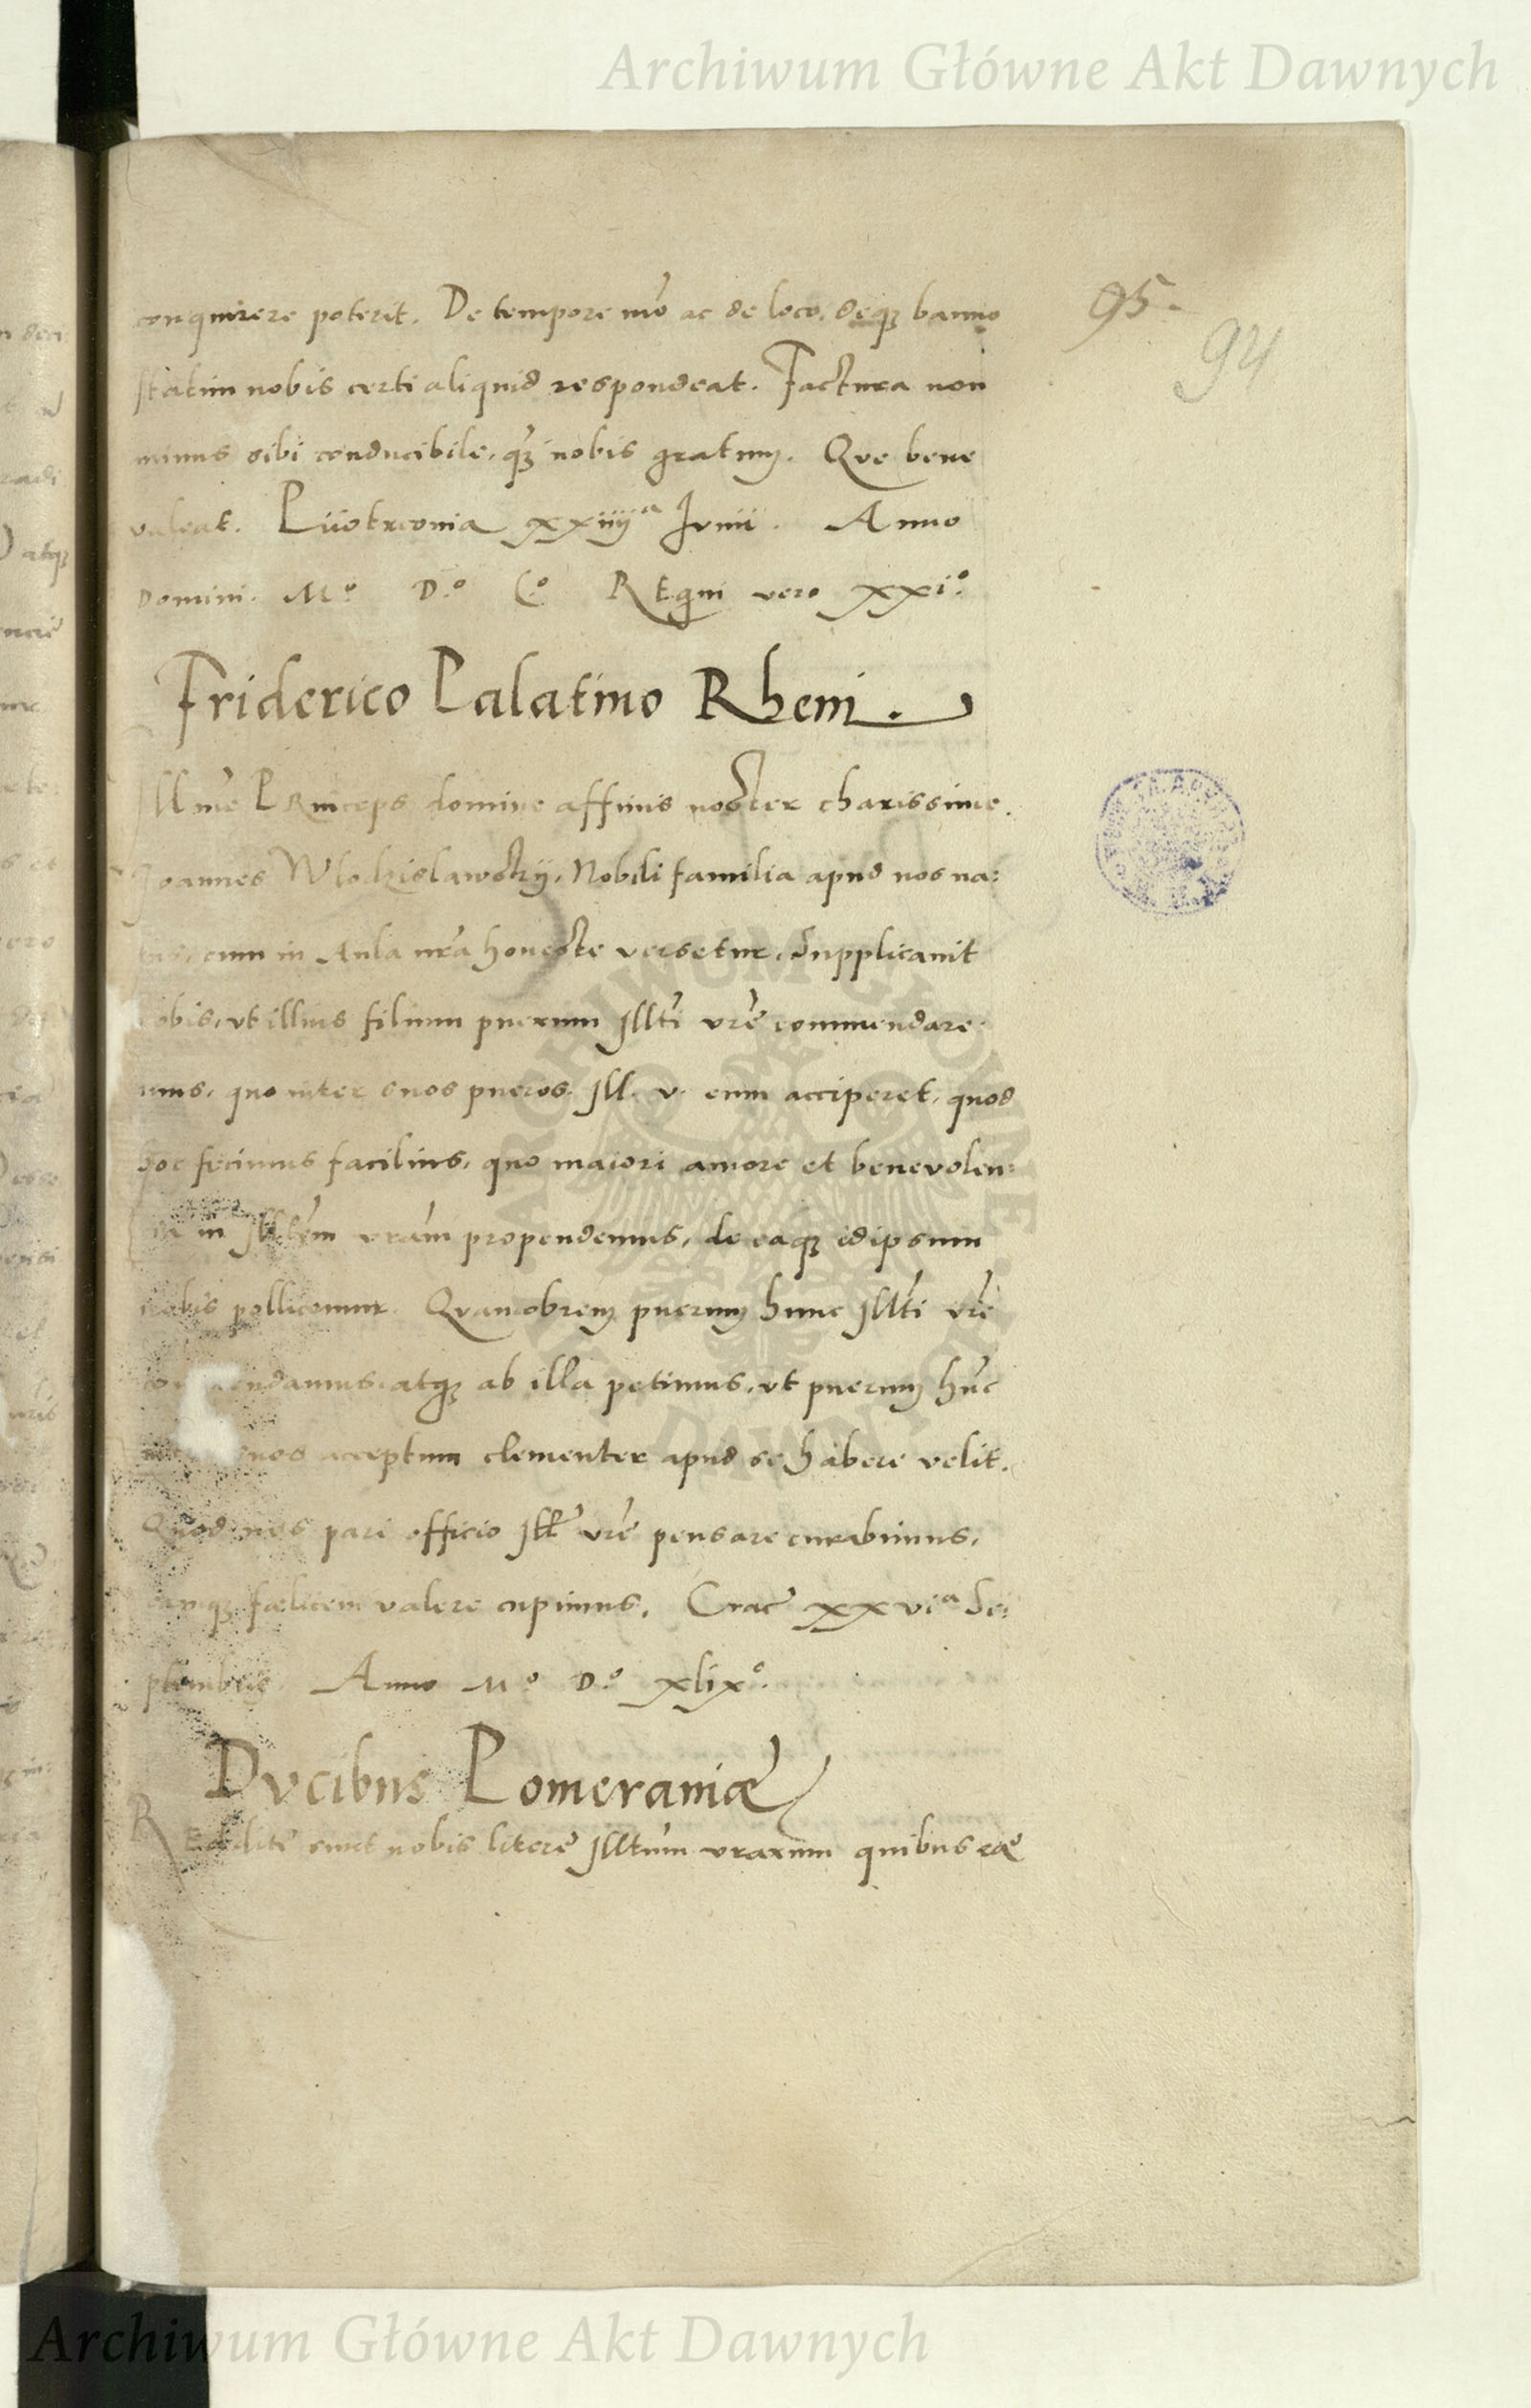 Archiwum Główne Akt Dawnych
95.
94
conquirere poterit. De tempore vero ac de loco, deq3 banno
statim nobis certi aliquid respondeat. Factura non
minus sibi conducibile, q3 nobis gratum. Que bene
valeat. Piiotrconia xxiiij a Junii. Anno
Domini. Mº Dº Lº REgni vero xxiº
Friderico Palatino Rheni.
Illme PRinceps domine affinis noster charissime.
Joannes Wlodzislawskÿ, Nobili familia apud nos na:
tus, cum in Aula nra honeste versetur, Supplicavit
nobis, ut illius filium puerum Illti vre commendare:
mus, quo inter suos pueros Ill. v. eum acciperet, quod
hoc fecimus facilius, quo maiori amore et benevolen:
tia in Illtem vram propendemus, de eaq3 idipsum
nobis pollicemur. Quamobrem puerum hunc Illti vre
commendamus atq3 ab illa petimus, ut puerum hunc
suos acceptum clementer apud se habere velit.
Quod nos pari officio Ill vre pensare curabimus,
eamq3 fælicem valere cupimus. Crac xxvi a Se:
ptembris. Anno Mº Dº xlixº.
DVcibus Pomeraniæ
REddite sunt nobis litere Illtum vrarum quibus eæ
ARCHIWUM GŁÓWNE AKT DAWNYCH
Archiwum Główne Akt Dawnych